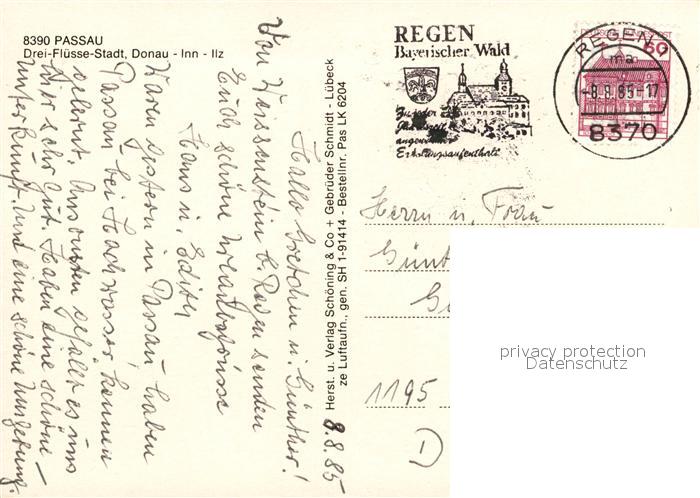 8390 PASSAU
Drei-Flüsse-Stadt, Donau - Inn - Ilz
8.8.85
Hallo Gretchen u. Günther!
Von Weissenstein b. Regen senden
Euch schöne Urlaubsgrüsse
Hans u. Edith
Waren gestern in Passau haben
Passau bei Hochwasser kennen
gelernt. Ansonsten gefällt es uns
hier sehr gut. Haben eine schöne
Unterkunft. Und eine schöne Umgebung.
Herst. u. Verlag Schöning & Co + Gebrüder Schmidt - Lübeck
ze Luftaufn., gen. SH 1-91414 - Bestellnr. Pas LK 6204
REGEN
Bayerischer Wald
angenehmen
Erholungsaufenthalt
REGEN 1
ma
-8.8.85-17
8370
60
Herrn u. Frau
Günt
G
1195
D
privacy protection
Datenschutz